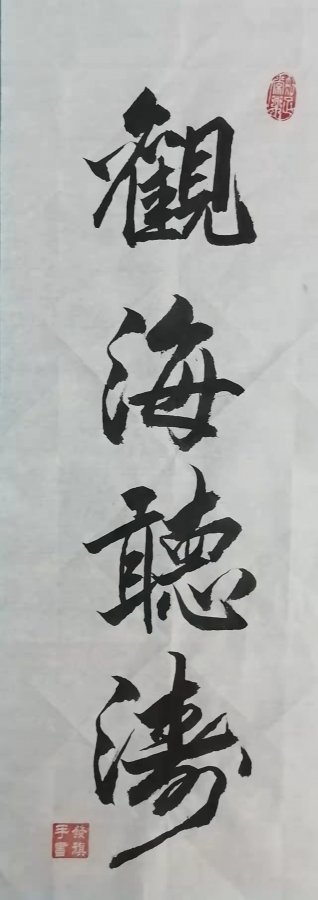 觀海聽濤
手書